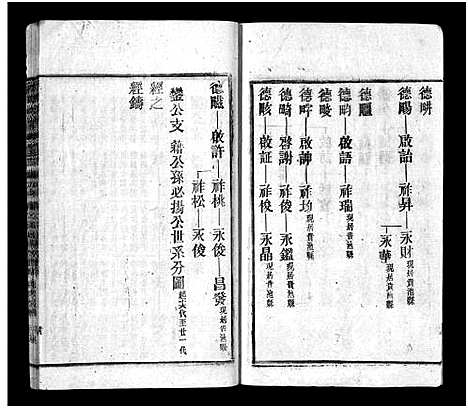 德畊
德陽—啟詒—祚昇—永財現居貴池縣
永華現居貴池縣
德疆
德畇—啟語—祚瑞現居貴池縣
德畯
德畤—啟諍—祚均現居貴池縣
德畸—啓謝—祚俊—永鑑現居貴池縣
德畡—啟証—祚俊—永晶現居貴池縣
德疇—啟許—祚桃—永俊—昌發現居貴池縣
祚松—永俊
經之
鑾公支 籍公孫必揚公世系分圖起十六代至廿一代
經鑄